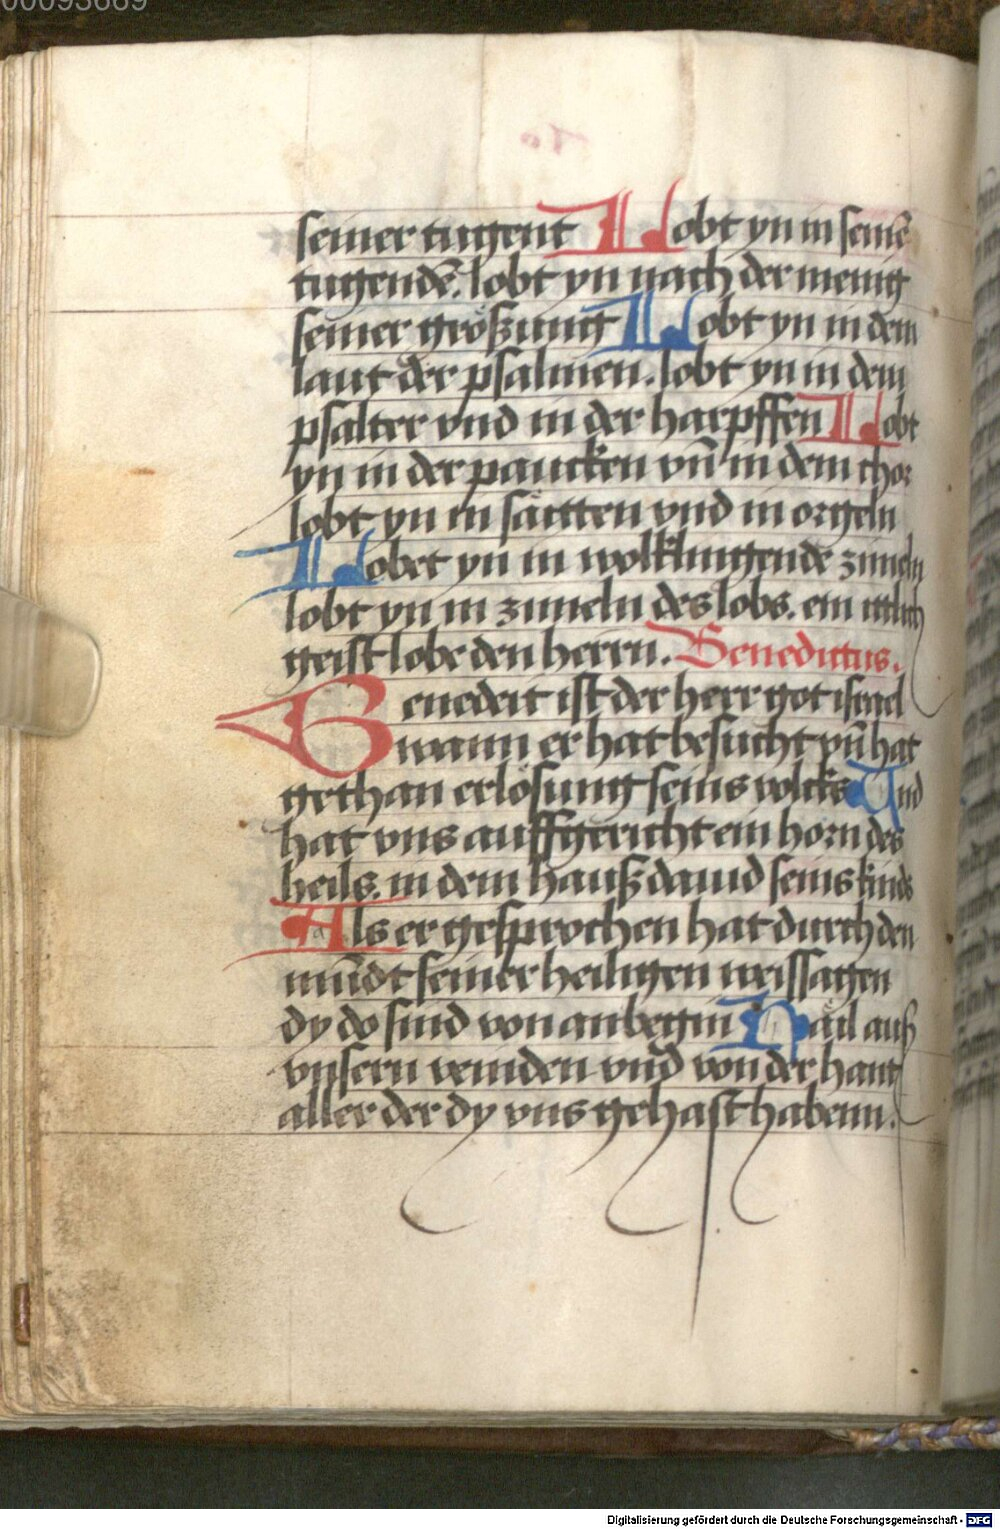 00093669
seiner tugent Lobt yn in seinē
tugendē. lobt yn nach der menig
seiner größzung Lobt yn in dem
laut der psalmen. lobt yn in dem
psalter vnd in der harpffen Lobt
yn in der paucken vn̄ in dem chor
lobt yn in saitten vnd in orgeln
Lobet yn in wolklingende zimeln
lobt yn in zimeln des lobs. ein itlich
geist lobe den herrn. Benedictus.
Benedeit ist der herr got israel
wann er hat besucht vn̄ hat
gethan erlösung seins volcks Und
hat vns auffgericht ein horn des
heils. in dem hauß dauid seins kinds
Als er gesprochen hat durch den
mūdt seiner heiligen weissagen
dy do sind von anbegin Hail auß
vnsern veinden vnd von der hant
aller der dy vns gehast habenn.
Digitalisierung gefördert durch die Deutsche Forschungsgemeinschaft - DFG